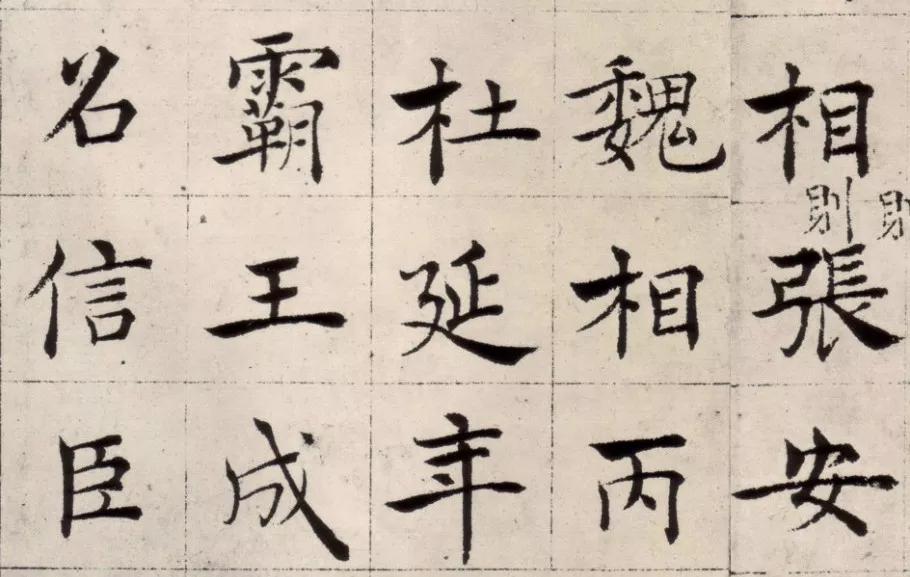 相張安
則
魏相丙
杜延年
霸王成
名信臣